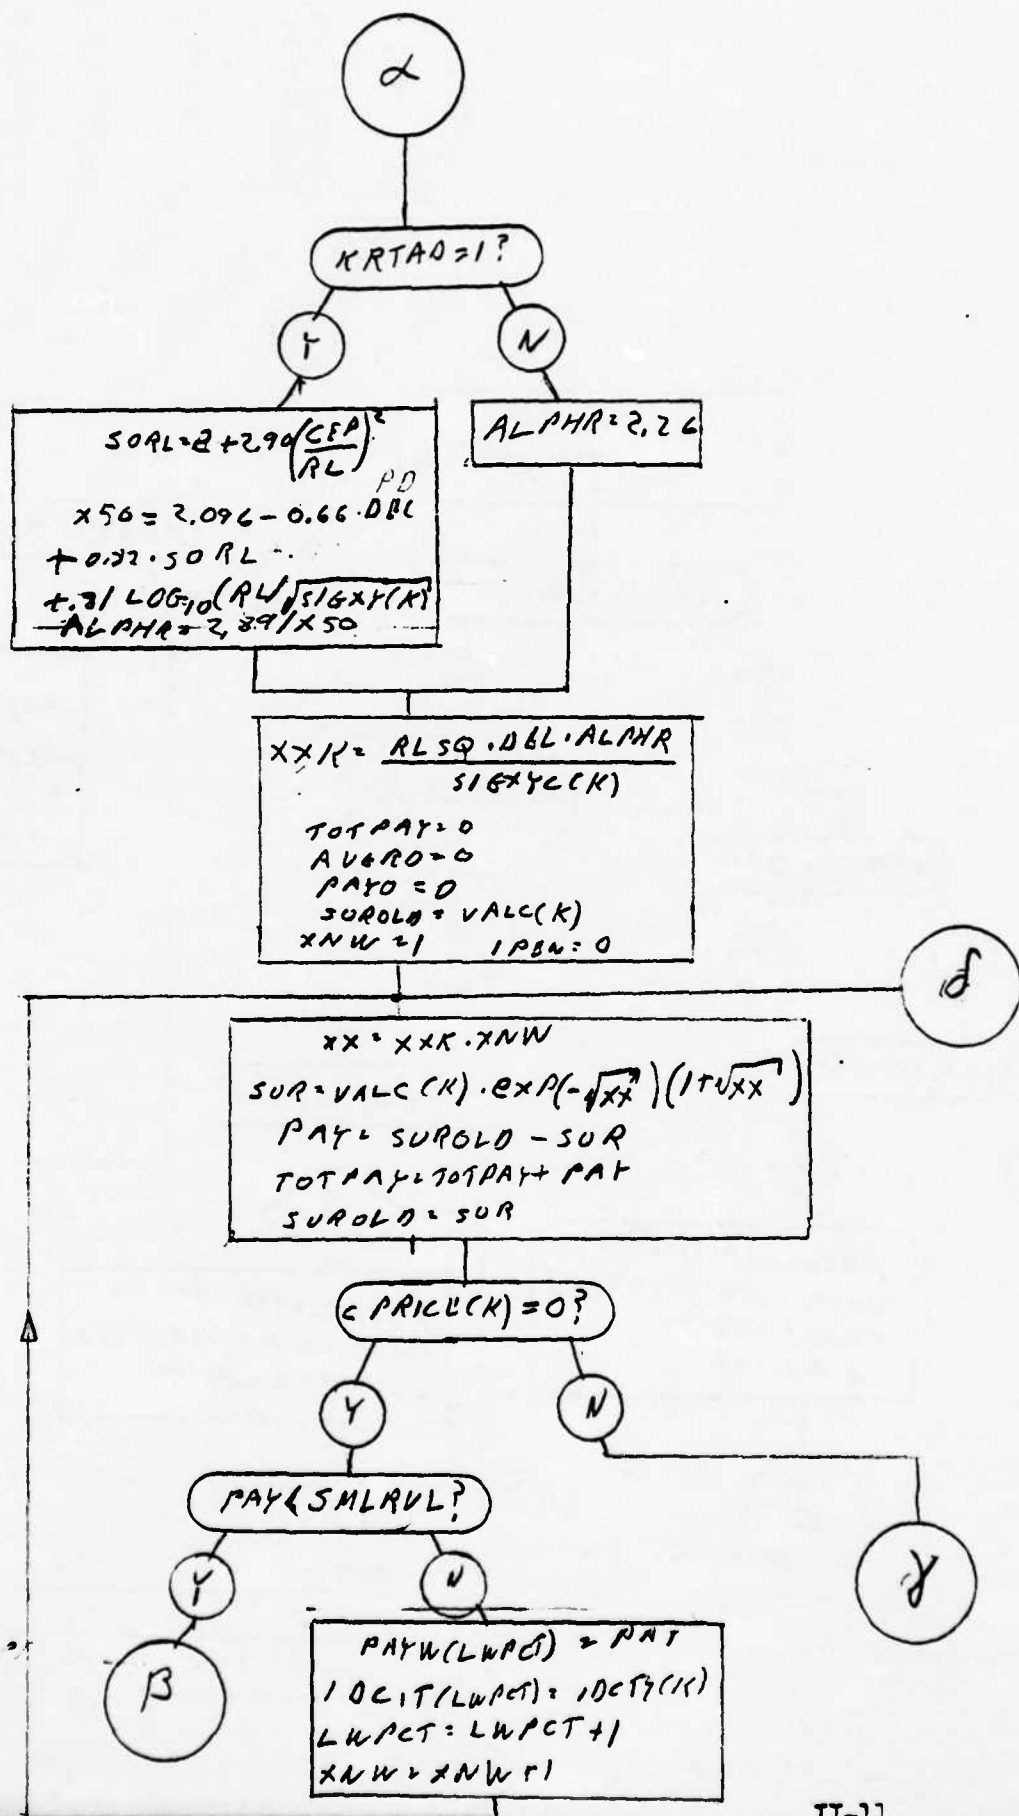 α
KRTAD=1?
Y N
SORL=2+2.90(CEP/RL)²
PD
X50=2.096-0.66·DBL
+0.22·SORL
+.31 LOG₁₀(RL/√SIGXY(K)
ALPHR=2.89/X50
ALPHR=2.26
XXK= RLSQ·DBL·ALPHR
SIGXYC(K)
TOTPAY=0
AVGRD=0
PAYO=0
SUROLD=VALC(K)
XNW=1 IPBN=0
δ
XX=XXK·XNW
SUR=VALC(K)·EXP(-√XX)(1+√XX)
PAY=SUROLD-SUR
TOTPAY=TOTPAY+PAY
SUROLD=SUR
CPRICE(K)=0?
Y N
PAY<SMLRVL?
Y N
γ
β
PAYW(LWPCT)=PAY
IDCIT(LWPCT)=IDCTY(K)
LWPCT=LWPCT+1
XNW=XNW+1
II-11